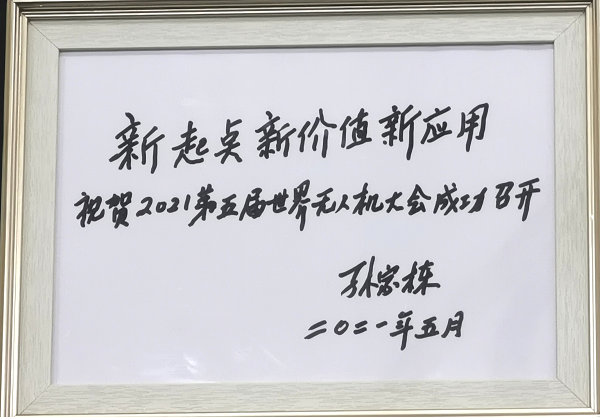 新起点新价值新应用
祝贺2021第五届世界无人机大会成功召开
孙家栋
二〇二一年五月